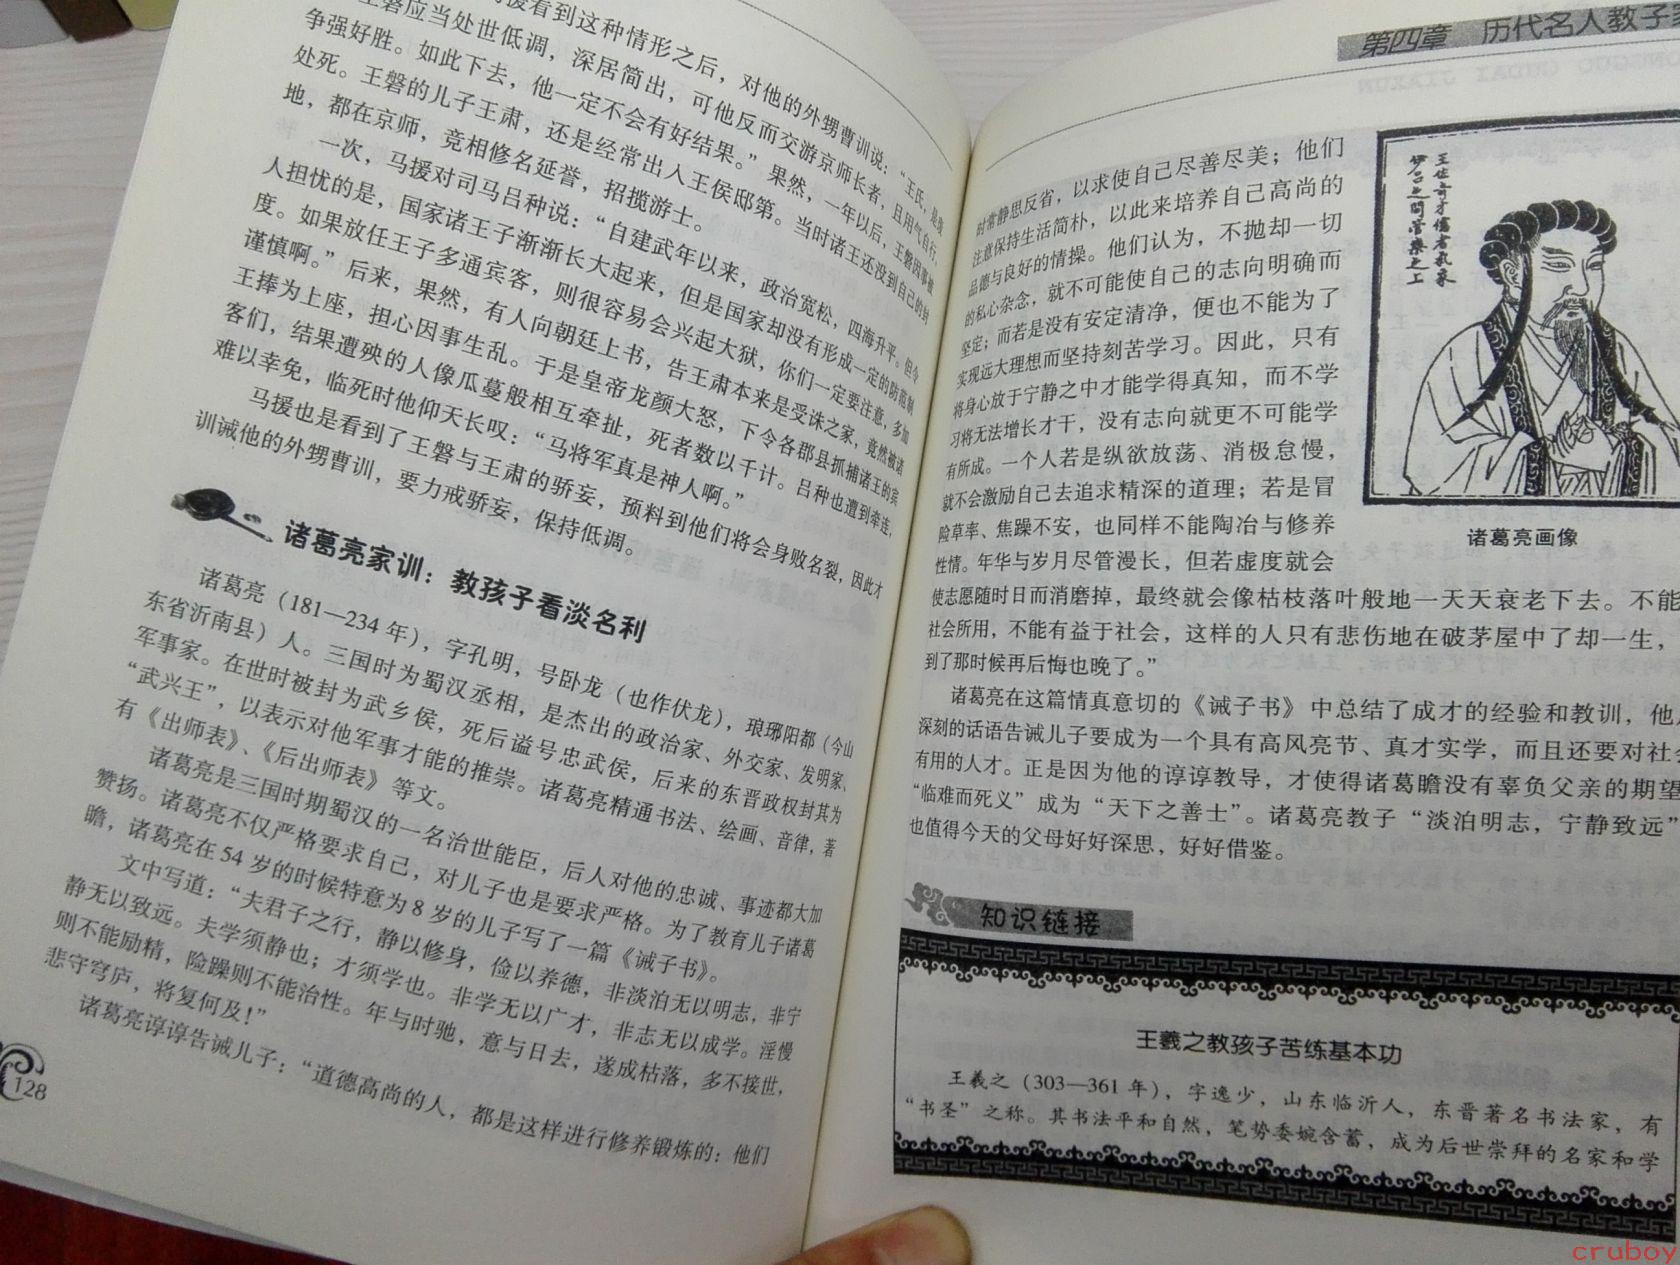 援看到这种情形之后，对他的外甥曹训说：“王氏，是废
王磐应当处世低调，深居简出，可他反而交游京师长者，且用气自行，
争强好胜。如此下去，他一定不会有好结果。”果然，一年以后，王磐因事被
处死。王磐的儿子王肃，还是经常出入王侯邸第。当时诸王还没到自己的封
地，都在京师，竞相修名延誉，招揽游士。
一次，马援对司马吕种说：“自建武年以来，政治宽松，四海升平。但令
人担忧的是，国家诸王子渐渐长大起来，但是国家却没有形成一定的防范制
度。如果放任王子多通宾客，则很容易会兴起大狱，你们一定要注意，多加
谨慎啊。”后来，果然，有人向朝廷上书，告王肃本来是受诛之家，竟然被诸
王捧为上座，担心因事生乱。于是皇帝龙颜大怒，下令各郡县抓捕诸王的宾
客们，结果遭殃的人像瓜蔓般相互牵扯，死者数以千计。吕种也遭到牵连，
难以幸免，临死时他仰天长叹：“马将军真是神人啊。”
马援也是看到了王磐与王肃的骄妄，预料到他们将会身败名裂，因此才
训诫他的外甥曹训，要力戒骄妄，保持低调。
诸葛亮家训：教孩子看淡名利
诸葛亮（181—234 年），字孔明，号卧龙（也作伏龙），琅琊阳都（今山
东省沂南县）人。三国时为蜀汉丞相，是杰出的政治家、外交家、发明家、
军事家。在世时被封为武乡侯，死后谥号忠武侯，后来的东晋政权封其为
“武兴王”，以表示对他军事才能的推崇。诸葛亮精通书法、绘画、音律，著
有《出师表》、《后出师表》等文。
诸葛亮是三国时期蜀汉的一名治世能臣，后人对他的忠诚、事迹都大加
赞扬。诸葛亮不仅严格要求自己，对儿子也是要求严格。为了教育儿子诸葛
瞻，诸葛亮在 54 岁的时候特意为 8 岁的儿子写了一篇《诫子书》。
文中写道：“夫君子之行，静以修身，俭以养德，非淡泊无以明志，非宁
静无以致远。夫学须静也；才须学也。非学无以广才，非志无以成学。淫慢
则不能励精，险躁则不能治性。年与时驰，意与日去，遂成枯落，多不接世，
悲守穹庐，将复何及！”
诸葛亮谆谆告诫儿子：“道德高尚的人，都是这样进行修养锻炼的：他们
128
第四章 历代名人教子
时常静思反省，以求使自己尽善尽美；他们
注意保持生活简朴，以此来培养自己高尚的
品德与良好的情操。他们认为，不抛却一切
的私心杂念，就不可能使自己的志向明确而
坚定；而若是没有安定清净，便也不能为了
实现远大理想而坚持刻苦学习。因此，只有
将身心放于宁静之中才能学得真知，而不学
习将无法增长才干，没有志向就更不可能学
有所成。一个人若是纵欲放荡、消极怠慢，
就不会激励自己去追求精深的道理；若是冒
险草率、焦躁不安，也同样不能陶冶与修养
性情。年华与岁月尽管漫长，但若虚度就会
使志愿随时日而消磨掉，最终就会像枯枝落叶般地一天天衰老下去。不能
社会所用，不能有益于社会，这样的人只有悲伤地在破茅屋中了却一生，
到了那时候再后悔也晚了。”
王佐奇才儒者气象
伊吕之间管乐之上
诸葛亮画像
诸葛亮在这篇情真意切的《诫子书》中总结了成才的经验和教训，他
深刻的话语告诫儿子要成为一个具有高风亮节、真才实学，而且还要对社会
有用的人才。正是因为他的谆谆教导，才使得诸葛瞻没有辜负父亲的期望
“临难而死义”成为“天下之善士”。诸葛亮教子“淡泊明志，宁静致远”
也值得今天的父母好好深思，好好借鉴。
知识链接
王羲之教孩子苦练基本功
王羲之（303—361 年），字逸少，山东临沂人，东晋著名书法家，有
“书圣”之称。其书法平和自然，笔势委婉含蓄，成为后世崇拜的名家和学
cruboy